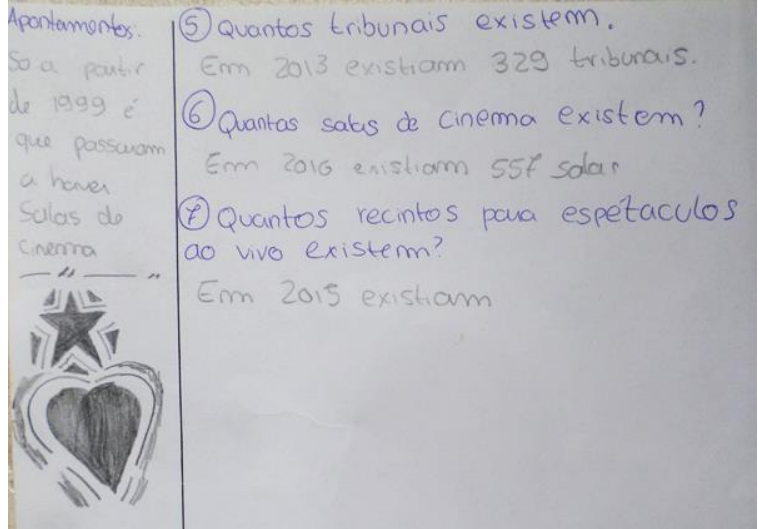 Apontamentos:
So a partir
de 1999 é
que passaram
a haver
Salas de
Cinema
— " —— "
⑤ Quantos tribunais existem.
Em 2013 existiam 329 tribunais.
⑥ Quantas salas de Cinema existem?
Em 2016 existiam 557 salas
⑦ Quantos recintos para espétaculos
ao vivo existem?
Em 2015 existiam